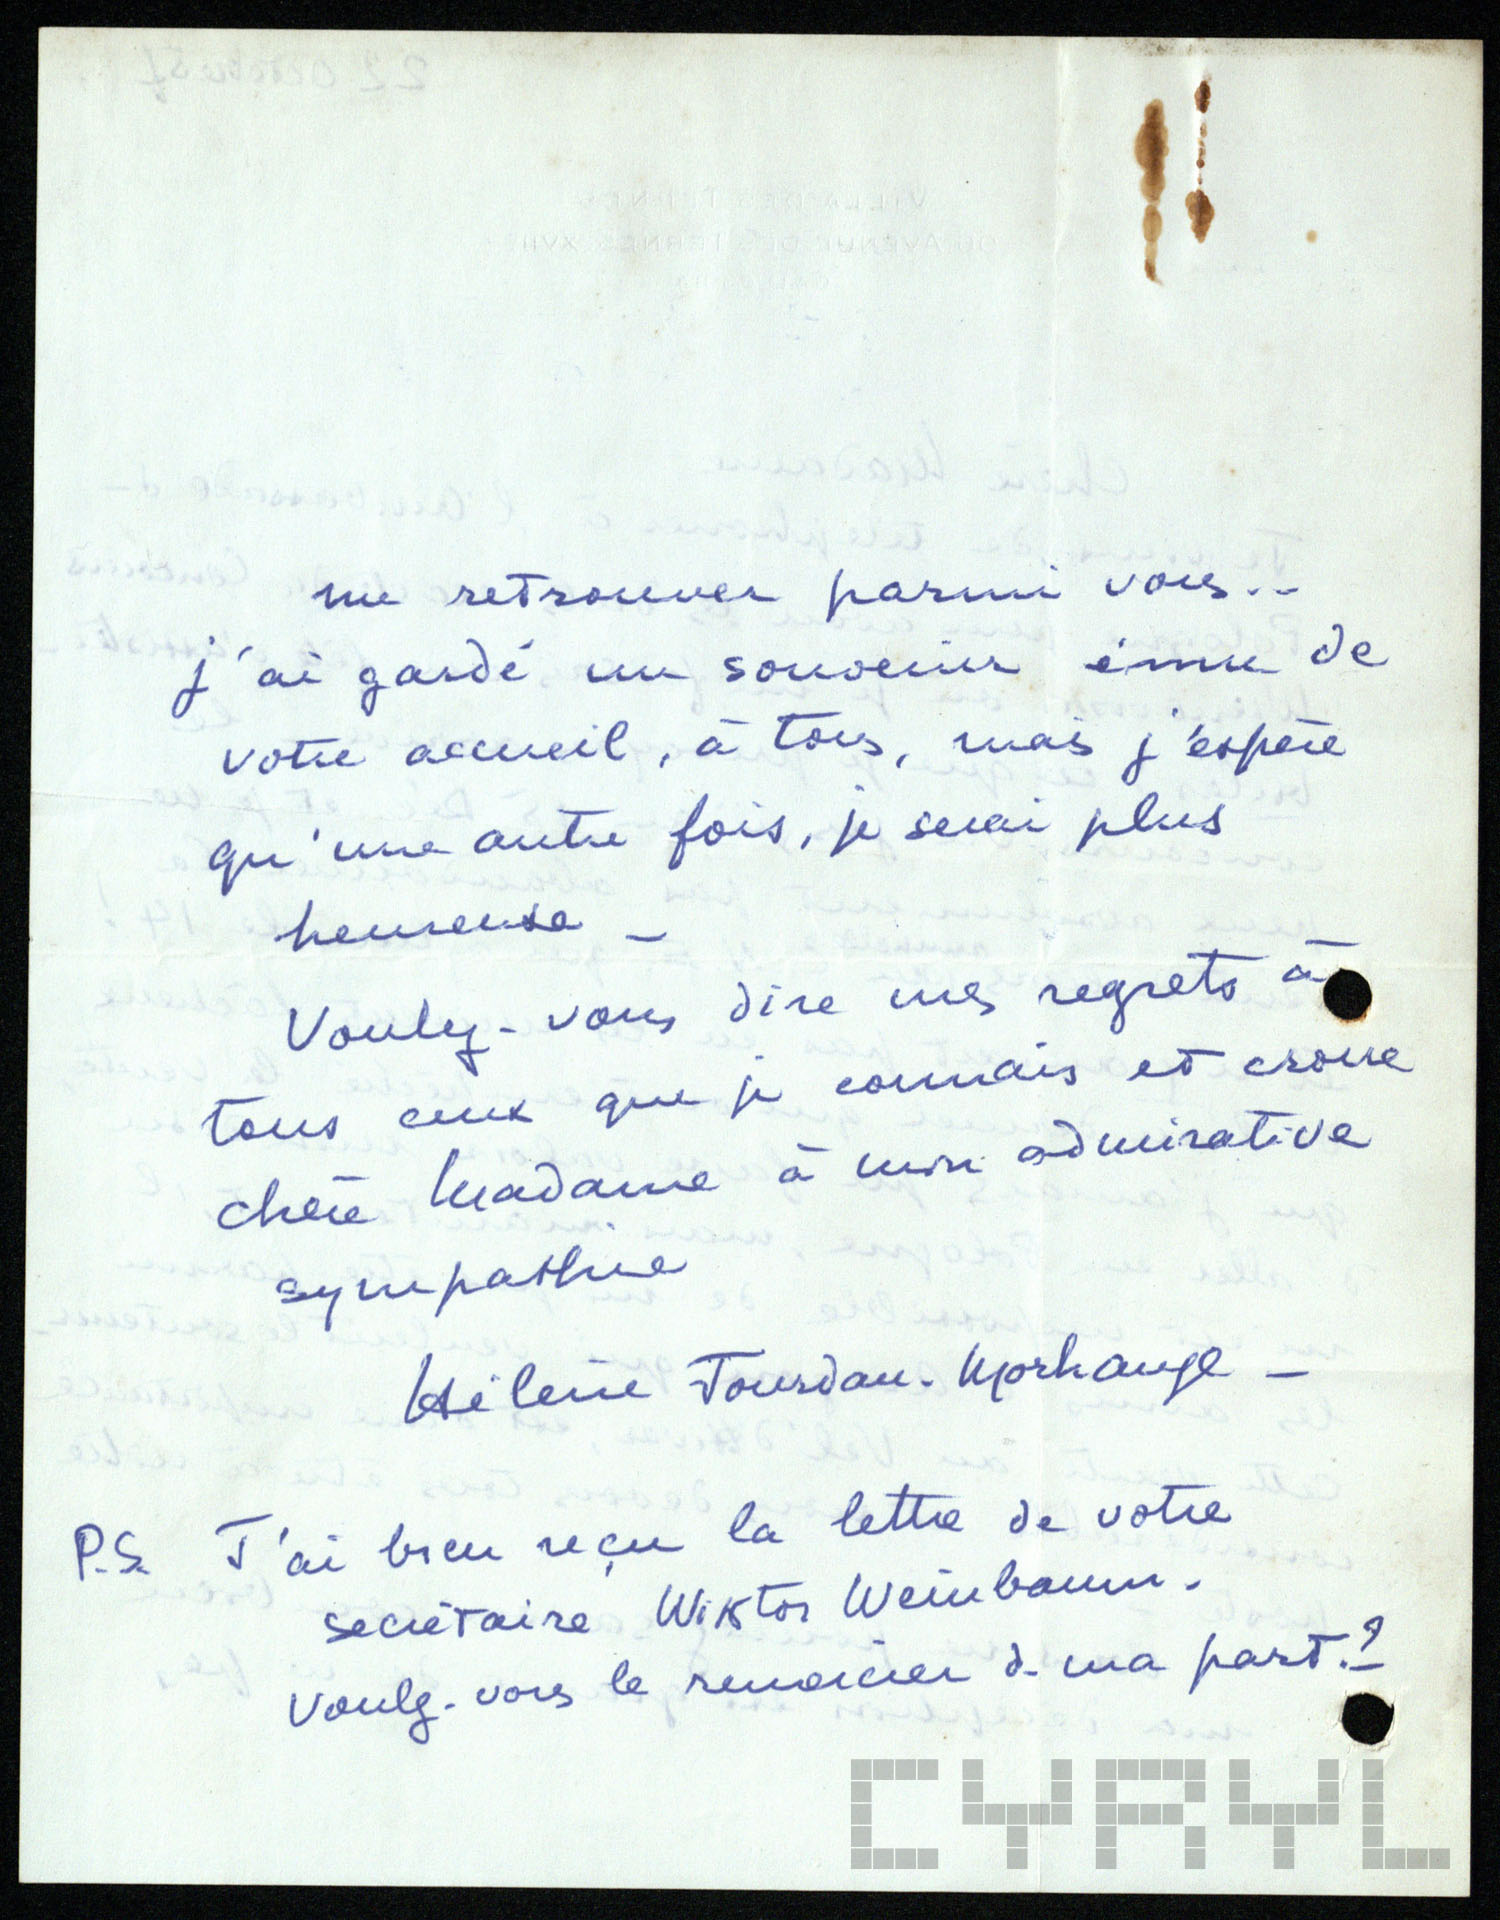 me retrouver parmi vous..
j'ai gardé un souvenir ému de
votre accueil, à tous, mais j'espère
qu'une autre fois, je serai plus
heureuse –
Voulez-vous dire mes regrets à
tous ceux que je connais et croire
chère Madame à mon admirative
sympathie
Hélène Jourdan-Morhange –
P.S. J'ai bien reçu la lettre de votre
secrétaire Wiktor Weinbaum.
Voulez-vous le remercier de ma part ?
CYRYL